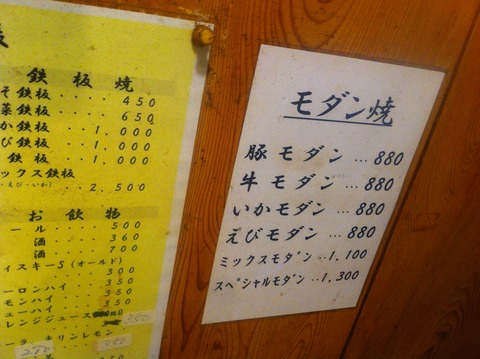 鉄板焼
そ鉄板‥‥450
菜鉄板‥‥650
か鉄板‥1,000
び鉄板‥1,000
鉄板‥1,000
ックス鉄板
えび・いか)‥2,500
お飲物
ール‥‥500
酒‥‥360
酒‥‥700
イスキーS(オールド)
300
ーロンハイ‥‥350
モンハイ‥‥350
ューハイ‥‥300
レンジジュース 350
ーラ キリンレモン
200 350
モダン焼
豚モダン…880
牛モダン…880
いかモダン…880
えびモダン…880
ミックスモダン‥1,100
スペシャルモダン‥1,300